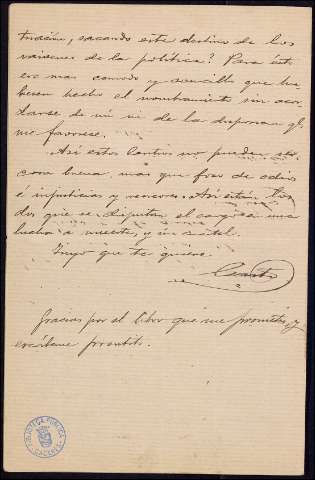 tración, sacando este destino de los
vaivenes de la política? Para esto
era mas comodo y sencillo que hu-
biesen hecho el nombramiento sin acor-
darse de mi ni de la disposicion q.
me favorece.
Asi estos Centros no pueden ser
cosa buena, mas que foco de odios
é injusticias y rencores. Asi están los
dos que se disputan el cargo en una
lucha á muerte, y
Tuyo que te quiere
Gracias por el libro que me prometes, y
escribeme prontito.
BIBLIOTECA PUBLICA
CACERES